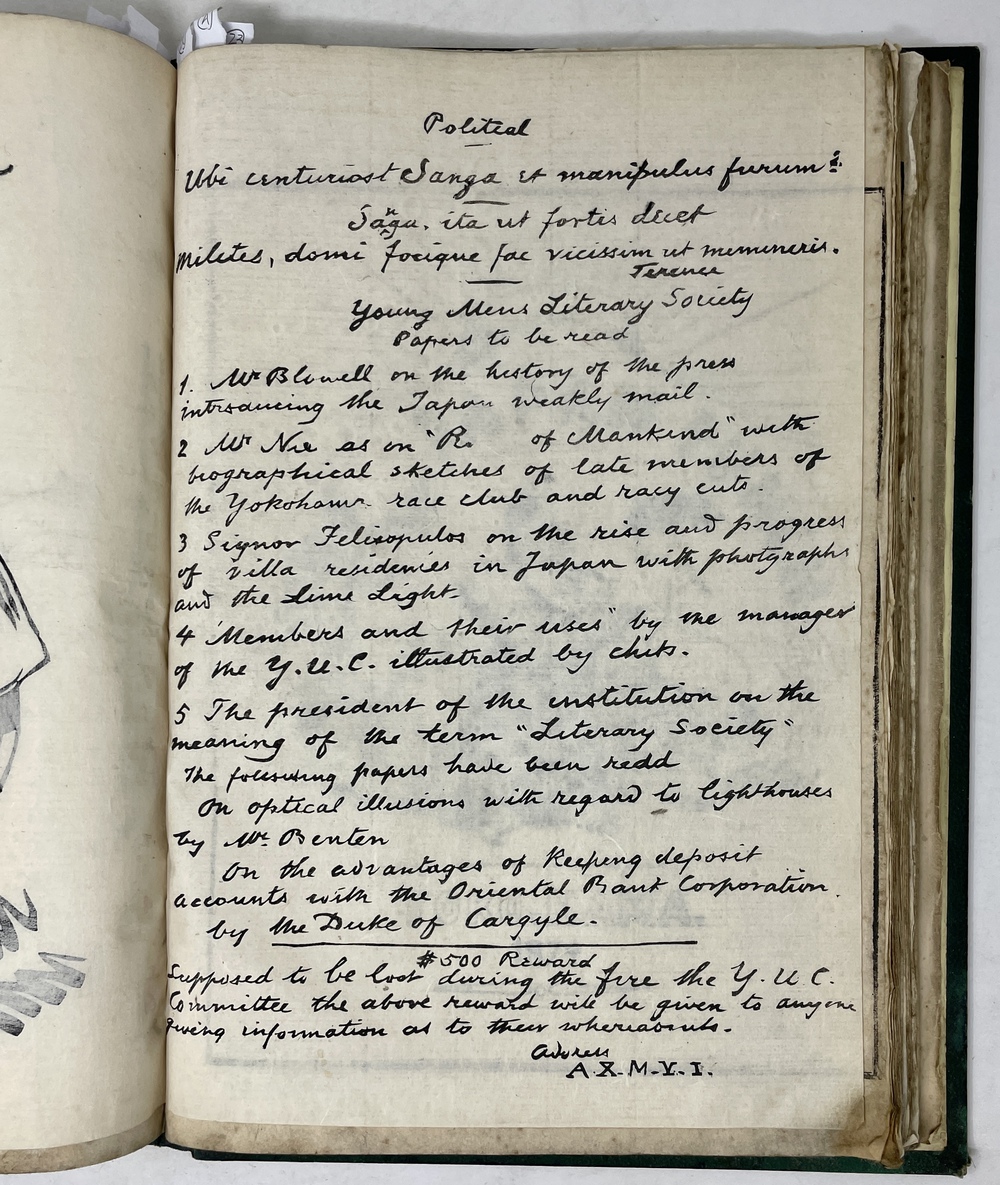 Political
Ubi centuriost Sanga et manipulus furum?
Sanga, ita ut fortis decet
Milites, domi focique fac vicissim ut memineris.
Terence
Young Mens Literary Society
Papers to be read
1. Mr Blowell on the history of the press
introducing the Japan weakly mail.
2 Mr on "R. of Mankind" with
biographical sketches of late members of
the Yokohama race club and racy cuts.
3 Signor Felisopulos on the rise and progress
of villa residenies in Japan with photgraphs
and the Lime Light.
4 "Members and their uses" by the manager
of the Y.U.C. illustrated by chits.
5 The president of the institution on the
meaning of the term "Literary Society"
The following papers have been redd
On optical illusions with regard to lighthouses
by Mr. Benten
On the advantages of Keeping deposit
accounts with the Oriental Bank Corporation.
by the Duke of Cargyle.
$500 Reward
Supposed to be lost during the fire the Y.U.C.
Committee the above reward will be given to anyone
giving information as to their whereabouts.
Adress
A.X.M.V.I.